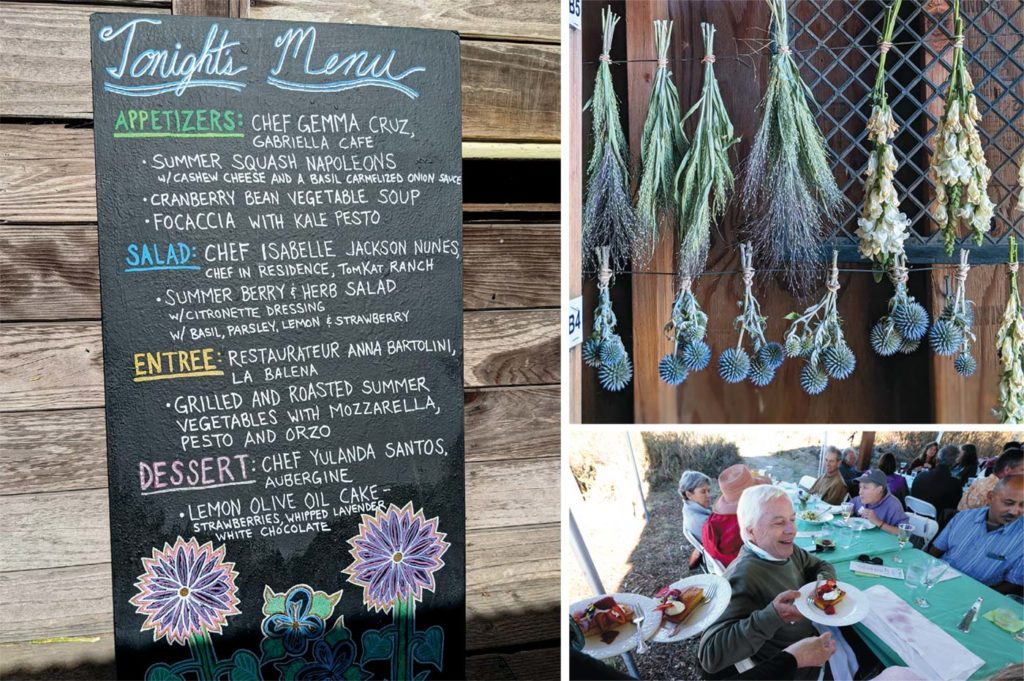 Tonights Menu
APPETIZERS: CHEF GEMMA CRUZ,
GABRIELLA CAFE
• SUMMER SQUASH NAPOLEONS
W/ CASHEW CHEESE AND A BASIL CARMELIZED ONION SAUCE
• CRANBERRY BEAN VEGETABLE SOUP
• FOCACCIA WITH KALE PESTO
SALAD: CHEF ISABELLE JACKSON NUNES,
CHEF IN RESIDENCE, TOMKAT RANCH
• SUMMER BERRY & HERB SALAD
W/ CITRONETTE DRESSING
W/ BASIL, PARSLEY, LEMON & STRAWBERRY
ENTREE: RESTAURATEUR ANNA BARTOLINI,
LA BALENA
• GRILLED AND ROASTED SUMMER
VEGETABLES WITH MOZZARELLA,
PESTO AND ORZO
DESSERT: CHEF YULANDA SANTOS,
AUBERGINE
• LEMON OLIVE OIL CAKE –
STRAWBERRIES, WHIPPED LAVENDER
WHITE CHOCOLATE
B5
B4